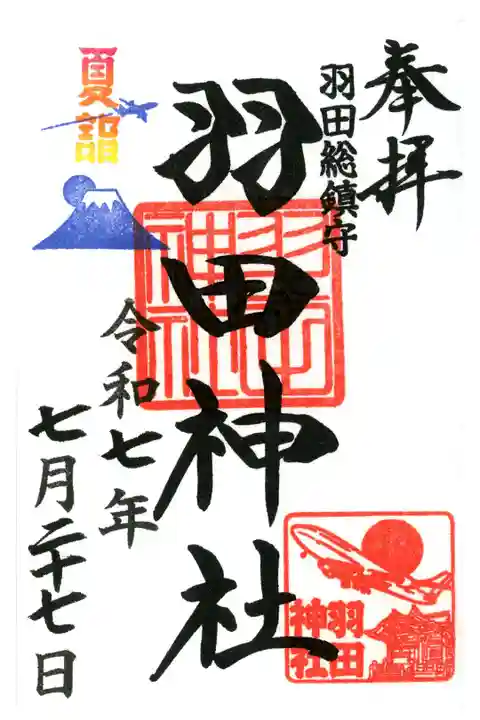 奉拝
羽田総鎮守
羽田神社
羽田神社
夏詣
令和七年
七月二十七日
羽田
神社